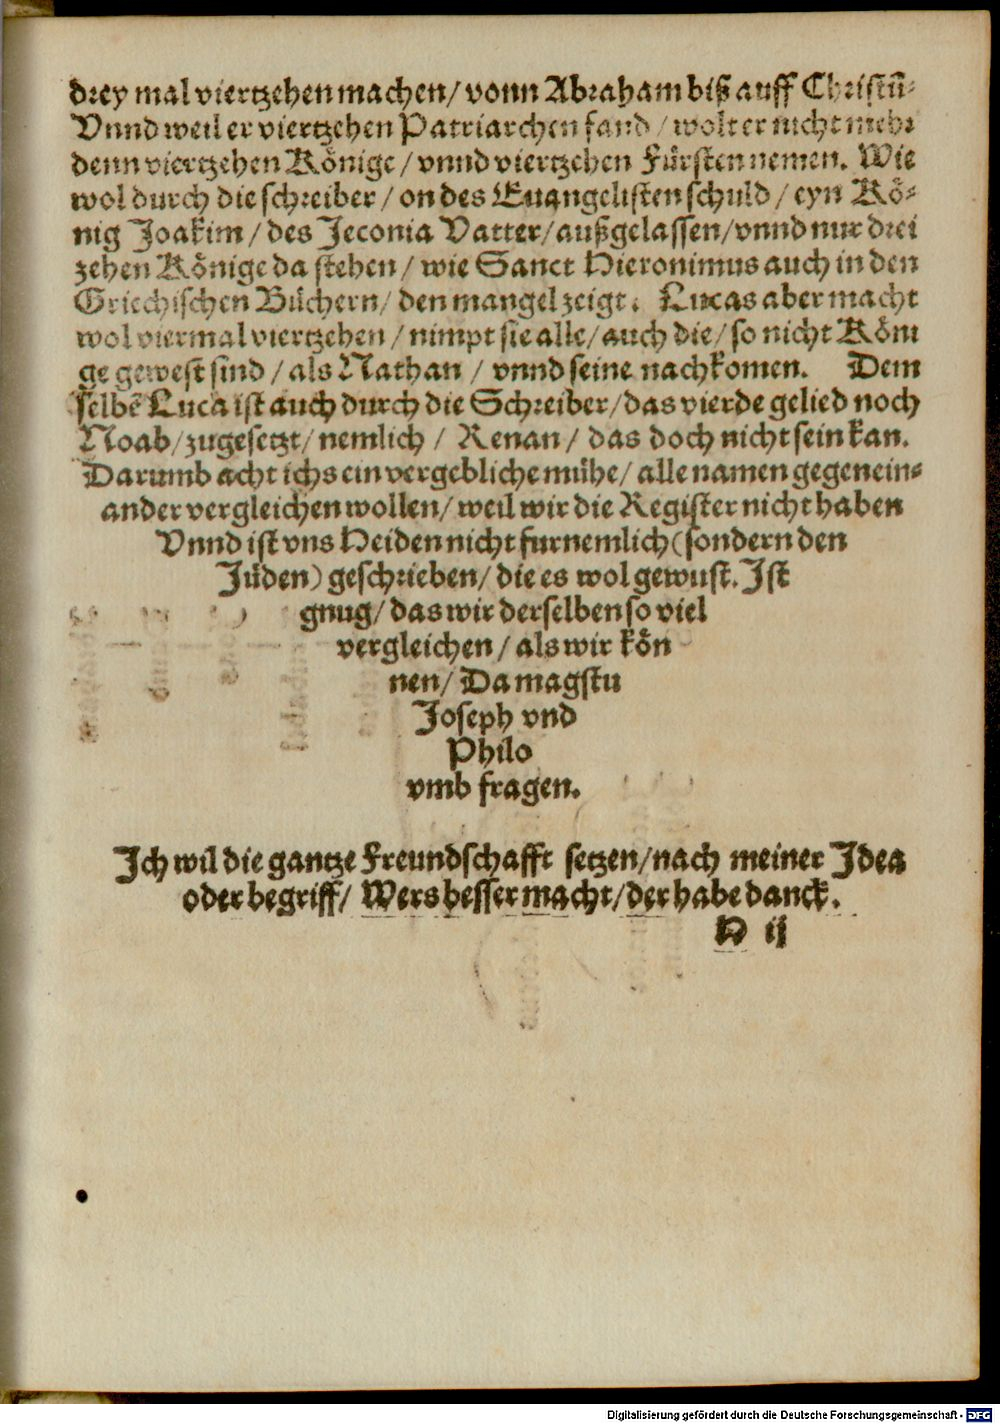 drey mal viertzehen machen/ vonn Abraham biß auff Christū-
Vnnd weil er viertzehen Patriarchen fand / wolt er nicht mehr
denn viertzehen Könige/ vnnd viertzehen Fürsten nemen. Wie
wol durch die schreiber/ on des Euangelisten schuld/ eyn Kö-
nig Joakim/ des Jeconia Vatter/ außgelassen/ vnnd nur drei
zehen Könige da stehen/ wie Sanct Hieronimus auch in den
Griechischen Büchern/ den mangel zeigt. Lucas aber macht
wol viermal viertzehen / nimpt sie alle/ auch die/ so nicht Köni
ge gewest sind / als Nathan / vnnd seine nachkomen. Dem
selbē Luca ist auch durch die Schreiber/ das vierde gelied noch
Noah/ zugesetzt/ nemlich / Kenan/ das doch nicht sein kan.
Darumb acht ichs ein vergebliche mühe/ alle namen gegenein-
ander vergleichen wollen/ weil wir die Register nicht haben
Vnnd ist vns Heiden nicht furnemlich (sondern den
Jüden) geschrieben/ die es wol gewust. Ist
gnug/ das wir derselben so viel
vergleichen/ als wir kön
nen/ Da magstu
Joseph vnd
Philo
vmb fragen.
Ich wil die gantze Freundschafft setzen/ nach meiner Idea
oder begriff/ Wers besser macht/ der habe danck.
H ij
Digitalisierung gefördert durch die Deutsche Forschungsgemeinschaft - DFG